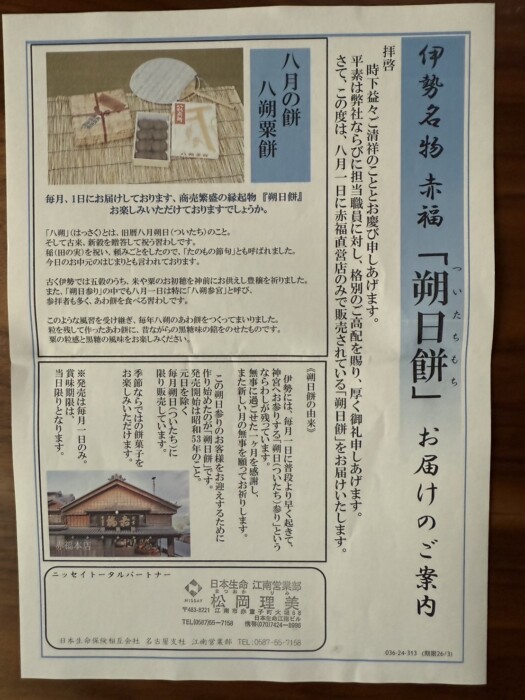 伊勢名物 赤福「朔日餅」お届けのご案内
ついたちもち
拝啓
時下益々ご清祥のこととお慶び申しあげます。
平素は弊社ならびに担当職員に対し、格別のご高配を賜り、厚く御礼申しあげます。
さて、この度は、八月一日に赤福直営店のみで販売されている「朔日餅」をお届けいたします。
八月の餅
八朔粟餅
毎月、1日にお届けしております、商売繁盛の縁起物『朔日餅』
お楽しみいただけておりますでしょうか。
「八朔」(はっさく)とは、旧暦八月朔日(ついたち)のこと。
そして古来、新穀を贈答して祝う習わしです。
稲(田の実)を祝い、頼みごとをしたので、「たのもの節句」とも呼ばれました。
今日のお中元のはじまりとも言われております。
古く伊勢では五穀のうち、米や粟のお初穂を神前にお供えし豊穣を祈りました。
また、「朔日参り」の中でも八月一日は特に「八朔参宮」と呼び、
参拝者も多く、あわ餅を食べる習わしです。
このような風習を受け継ぎ、毎年八朔のあわ餅をつくってまいりました。
粒を残して作ったあわ餅に、昔ながらの黒糖味の餡をのせたものです。
粟の粒感と黒糖の風味をお楽しみください。
《朔日餅の由来》
伊勢には、毎月一日に普段より早く起きて、
神宮へお参りする「朔日(ついたち)参り」という
ならわしが残っています。
無事に過ごせた一ヶ月を感謝し、
また新しい月の無事を願ってお祈りします。
この朔日参りのお客様をお迎えするために
作り始めたのが「朔日餅」です。
発売開始は昭和53年のこと。
元日を除く
毎月朔日(ついたち)に
限り販売しています。
季節ならではの餅菓子を
お楽しみいただけます。
※発売は毎月一日のみ。
賞味期限は、
当日限りとなります。
赤福本店
ニッセイトータルパートナー
NISSAY
日本生命 江南営業部
まつおか りみ
松岡理美
〒483-8221 江南市赤童子町大堀68
日本生命江南ビル
TEL(0587)55-7158 携帯(070)7424-8886
日本生命保険相互会社 名古屋支社 江南営業部 TEL:0587-55-7158
036-24-313 (期限26/3)